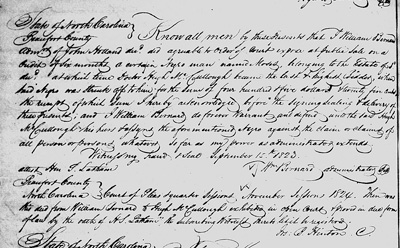 State of North Carolina
Beaufort County Know all men by these presents that I William Bernard
Admr of John Holland decd did agreeable to Order of Court expose at public Sale on a
Credit of Six months a certain Negro man named Moses, belonging to the Estate of sd
decd at which time Doctor Hugh McCullough became the last & highest bidder, & the
said Negro was struck off to him for the Sum of four hundred & five dollars Twenty five cents
the receipt of which sum I hereby acknowledge before the signing sealing & delivery of
these presents, and I William Bernard do forever Warrant and defend unto the said Hugh
McCullough his heirs & assigns the aforementioned Negro against the claim or claims of
all person or persons whatsoever so far as my power as administrator extends
Witness my hand & Seal September 12 1823.
attest Hen. S. Latham Wm Bernard administrator
Beaufort County
North Carolina Court of Pleas & quarter Sessions November Sessions 1824. Then was
the deed from William Bernard to Hugh McCullough exhibited in open Court & proved in due form
of law by the oath of H. S. Latham the subscribing witness thereto & ordered to be registered
State of North Carolina